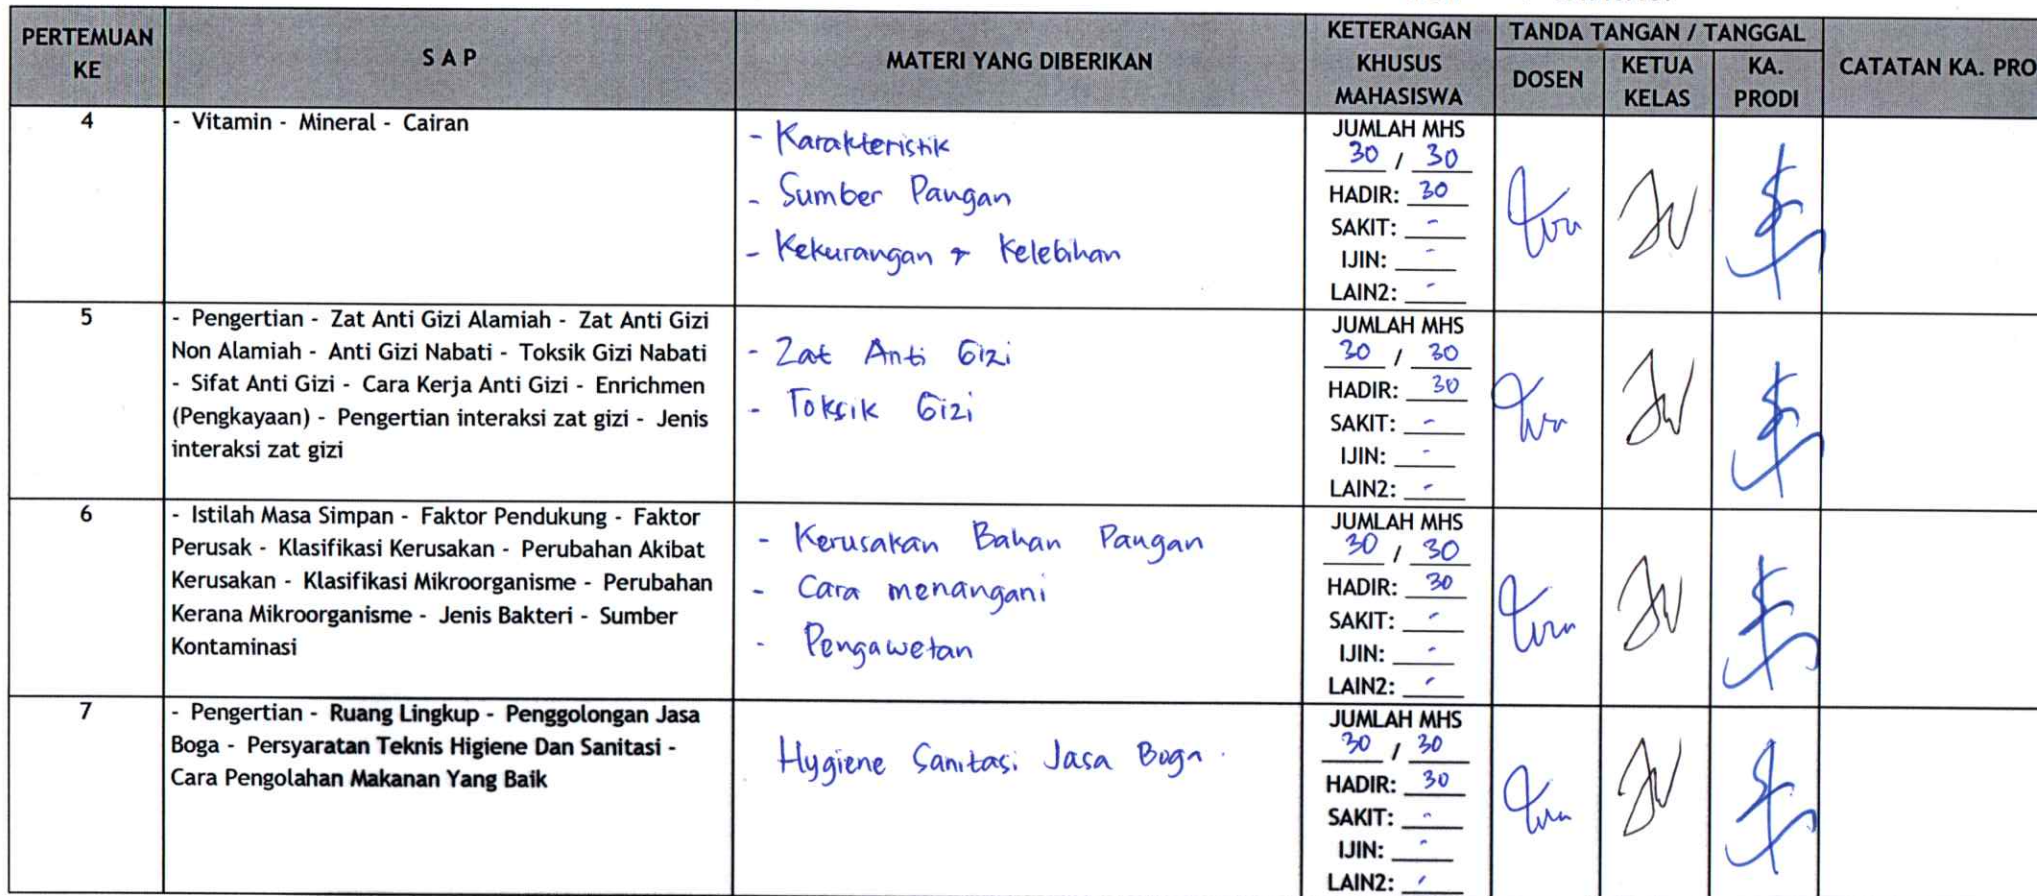 PERTEMUAN KE
S A P
MATERI YANG DIBERIKAN
KETERANGAN KHUSUS MAHASISWA
TANDA TANGAN / TANGGAL
DOSEN
KETUA KELAS
KA. PRODI
CATATAN KA. PRO
4
- Vitamin - Mineral - Cairan
- Karakteristik
- Sumber Pangan
- Kekurangan + Kelebihan
JUMLAH MHS
30 / 30
HADIR: 30
SAKIT: -
IJIN: -
LAIN2: -
5
- Pengertian - Zat Anti Gizi Alamiah - Zat Anti Gizi
Non Alamiah - Anti Gizi Nabati - Toksik Gizi Nabati
- Sifat Anti Gizi - Cara Kerja Anti Gizi - Enrichmen
(Pengkayaan) - Pengertian interaksi zat gizi - Jenis
interaksi zat gizi
- Zat Anti Gizi
- Toksik Gizi
JUMLAH MHS
30 / 30
HADIR: 30
SAKIT: -
IJIN: -
LAIN2: -
6
- Istilah Masa Simpan - Faktor Pendukung - Faktor
Perusak - Klasifikasi Kerusakan - Perubahan Akibat
Kerusakan - Klasifikasi Mikroorganisme - Perubahan
Kerana Mikroorganisme - Jenis Bakteri - Sumber
Kontaminasi
- Kerusakan Bahan Pangan
- Cara menangani
- Pengawetan
JUMLAH MHS
30 / 30
HADIR: 30
SAKIT: -
IJIN: -
LAIN2: -
7
- Pengertian - Ruang Lingkup - Penggolongan Jasa
Boga - Persyaratan Teknis Higiene Dan Sanitasi -
Cara Pengolahan Makanan Yang Baik
Hygiene Sanitasi Jasa Boga.
JUMLAH MHS
30 / 30
HADIR: 30
SAKIT: -
IJIN: -
LAIN2: -